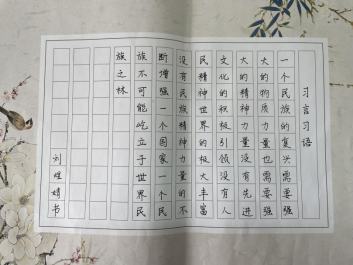 习言习语
一个民族的复兴需要强
大的物质力量也需要强
大的精神力量没有先进
文化的积极引领没有人
民精神世界的极大丰富
没有民族精神力量的不
断增强一个国家一个民
族不可能屹立于世界民
族之林
刘姓婧书